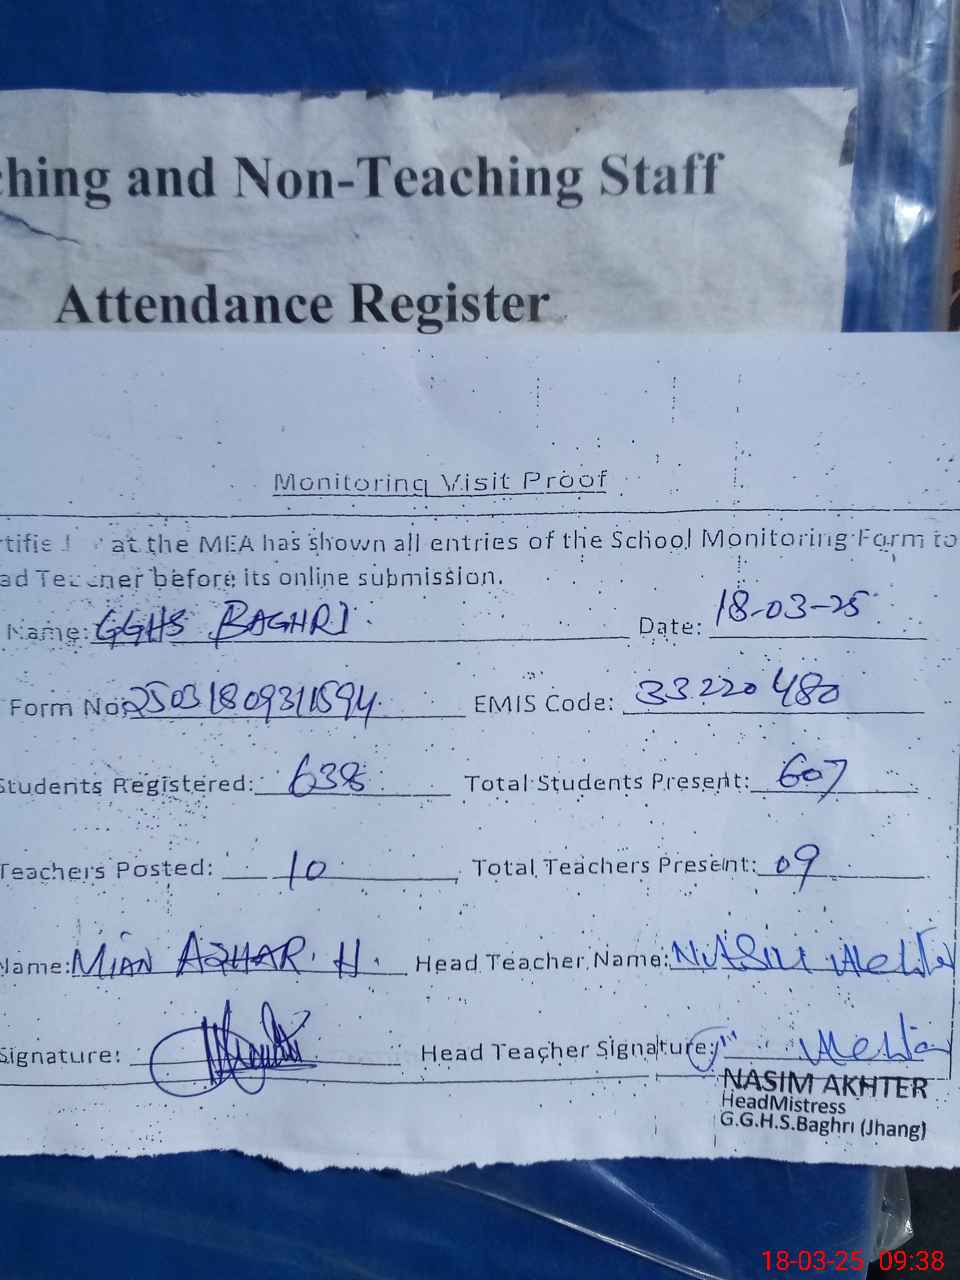 ching and Non-Teaching Staff
Attendance Register
Monitoring Visit Proof
at the MEA has shown all entries of the School Monitoring Form to
before its online submission.
Name: GGHS BAGHRI Date: 18-03-25
Form No: 25031809311594 EMIS Code: 33220480
Students Registered: 638 Total Students Present: 607
Teachers Posted: 10 Total Teachers Present: 09
Name: MIAN AZHAR. H. Head Teacher Name: Nasim Akhter
Signature: Head Teacher Signature: Akhtar
NASIM AKHTER
HeadMistress
G.G.H.S.Baghri (Jhang)
18-03-25 09:38